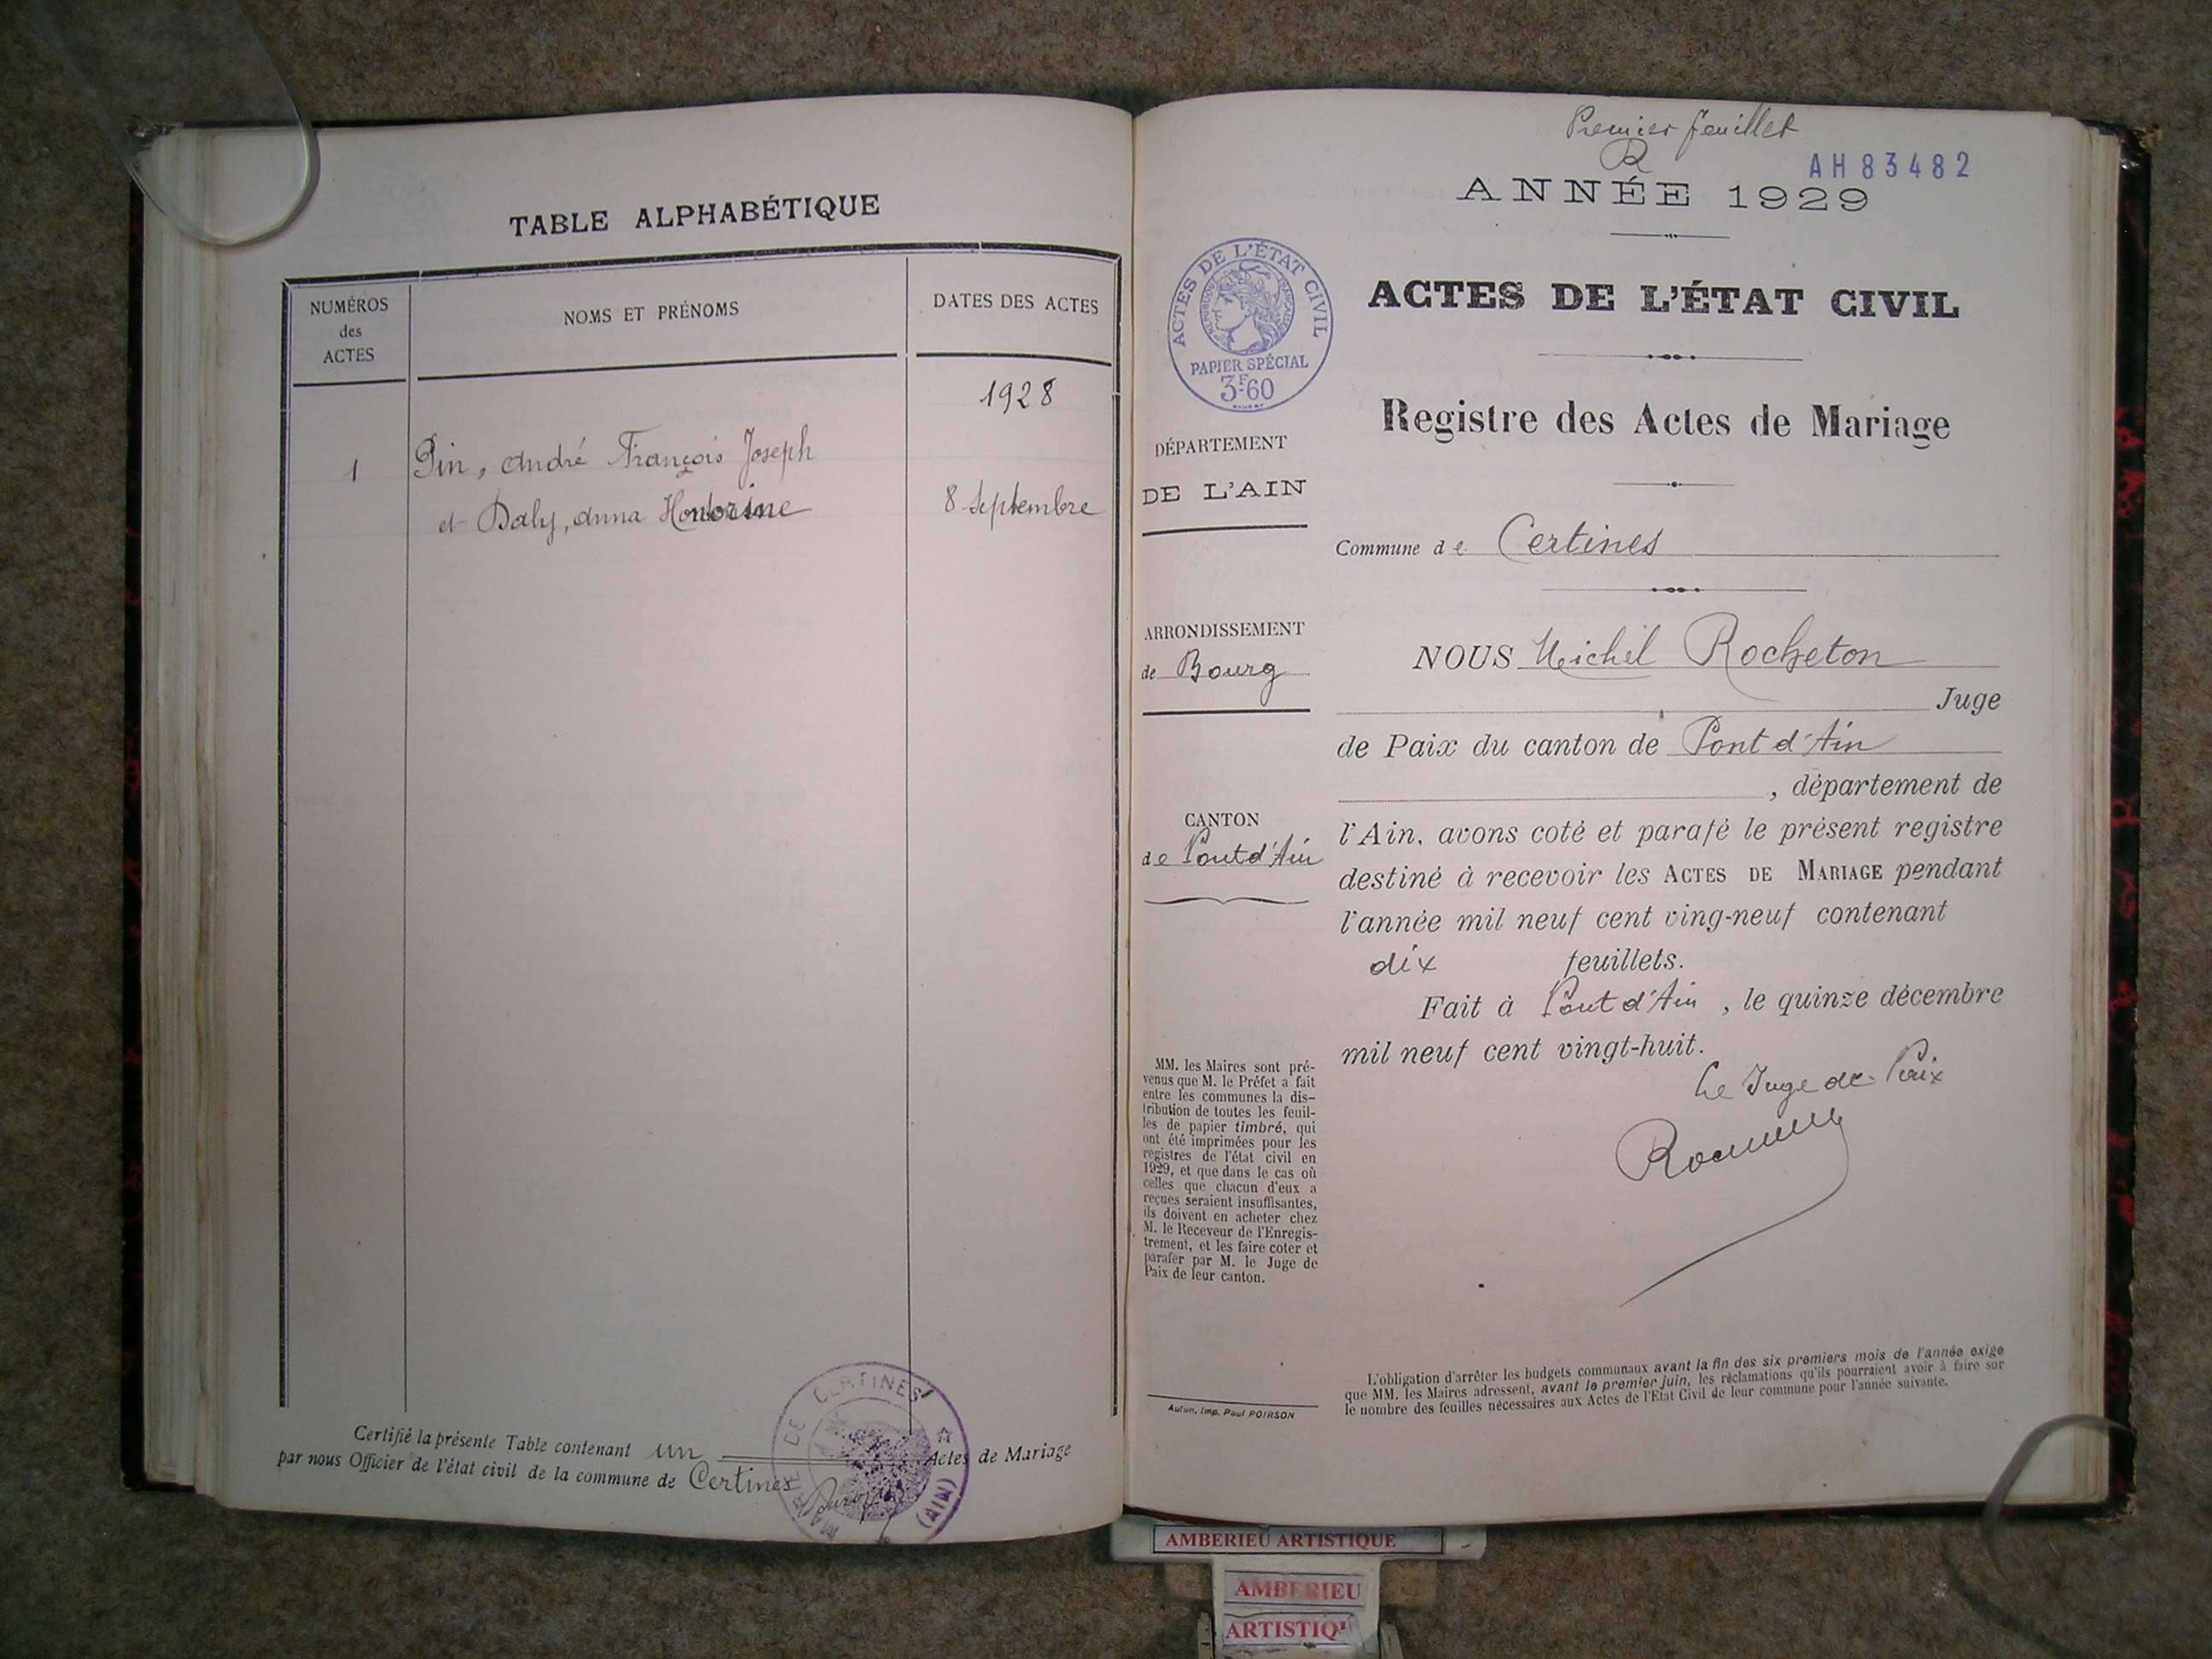 TABLE ALPHABÉTIQUE
NUMÉROS
des
ACTES
NOMS ET PRÉNOMS
DATES DES ACTES
1928
1
Pin, André François Joseph
et Daly, Anna Honorine
8 Septembre
Certifié la présente Table contenant un Actes de Mariage
par nous Officier de l'état civil de la commune de Certines
MAIRIE DE CERTINES (AIN)
Premier feuillet
R
AH83482
ANNÉE 1929
ACTES DE L'ÉTAT CIVIL
RÉPUBLIQUE FRANÇAISE
PAPIER SPÉCIAL
3F60
ACTES DE L'ÉTAT CIVIL
Registre des Actes de Mariage
DÉPARTEMENT
DE L'AIN
Commune de Certines
ARRONDISSEMENT
de Bourg
NOUS Michel Rocheton
Juge
de Paix du canton de Pont d'Ain
, département de
CANTON
de Pont d'Ain
l'Ain, avons coté et parafé le présent registre
destiné à recevoir les ACTES DE MARIAGE pendant
l'année mil neuf cent ving-neuf contenant
dix feuillets.
Fait à Pont d'Ain, le quinze décembre
mil neuf cent vingt-huit.
Le Juge de Paix
MM. les Maires sont pré-
venus que M. le Préfet a fait
entre les communes la dis-
tribution de toutes les feuil-
les de papier timbré, qui
ont été imprimées pour les
registres de l'état civil en
1929, et que dans le cas où
celles que chacun d'eux a
reçues seraient insuffisantes,
ils doivent en acheter chez
M. le Receveur de l'Enregis-
trement, et les faire coter et
parafer par M. le Juge de
Paix de leur canton.
Autun, Imp. Paul POIRSON
L'obligation d'arrêter les budgets communaux avant la fin des six premiers mois de l'année exige
que MM. les Maires adressent, avant le premier juin, les réclamations qu'ils pourraient avoir à faire sur
le nombre des feuilles nécessaires aux Actes de l'Etat Civil de leur commune pour l'année suivante.
AMBERIEU ARTISTIQUE
AMBERIEU
ARTISTIQU